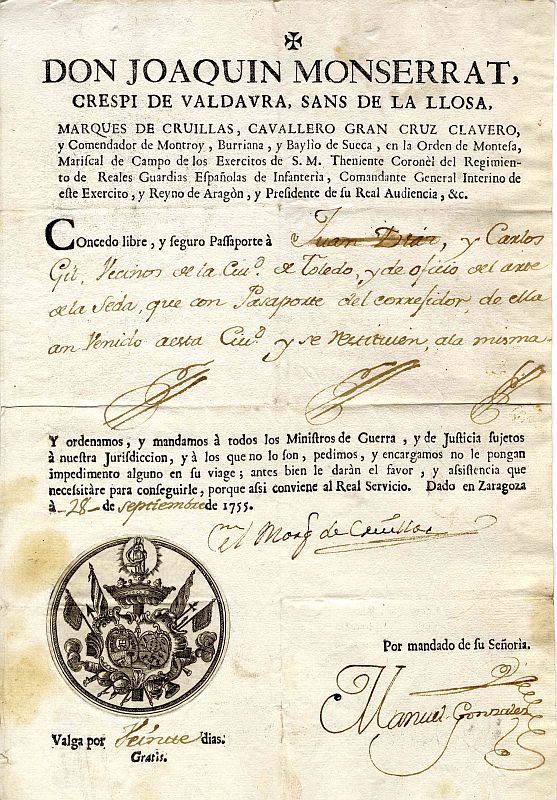 ✠
DON JOAQUIN MONSERRAT,
CRESPI DE VALDAVRA, SANS DE LA LLOSA,
MARQUES DE CRUILLAS, CAVALLERO GRAN CRUZ CLAVERO,
y Comendador de Montroy, Burriana, y Baylio de Sueca, en la Orden de Montesa,
Mariscal de Campo de los Exercitos de S. M. Theniente Coronèl del Regimien-
to de Reales Guardias Españolas de Infanteria, Comandante General Interino de
este Exercito, y Reyno de Aragòn, y Presidente de su Real Audiencia, &c.
Concedo libre, y seguro Passaporte à Juan Diaz, y Carlos
Gil, Vecinos de la Ciud. de Toledo, y de oficio del arte
de la Seda, que con Pasaporte del corregidor, de ella
an Venido aesta Ciud. y se restituien, ala misma
Y ordenamos, y mandamos à todos los Ministros de Guerra, y de Justicia sujetos
à nuestra Jurisdiccion, y à los que no lo son, pedimos, y encargamos no le pongan
impedimento alguno en su viage; antes bien le daràn el favor, y assistencia que
necessitàre para conseguirle, porque assi conviene al Real Servicio. Dado en Zaragoza
à 28 de septiembre de 1755.
el Marqs de Cruillas
Por mandado de su Señorìa.
Manuel Gonzalez
Valga por Veinte dias.
Gratis.